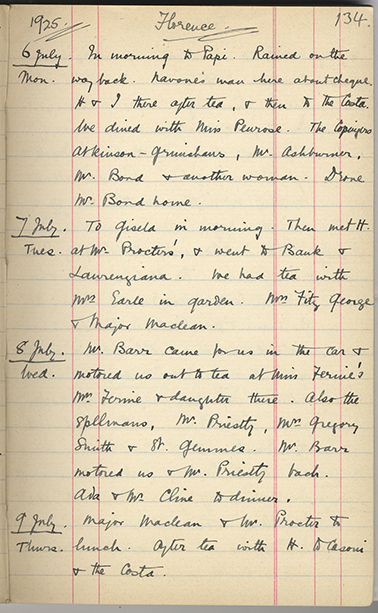 1925. Florence. 134.
6 July. In morning to Papi. Rained on the
Mon. way back. Navone's man here about cheque.
H & I there after tea, & then to the Costa.
We dined with Miss Penrose. The
Atkinson-Grimshaws, Mr. Ashburner,
Mr. Bond & another woman. Drove
Mr. Bond home.
7 July. To Gisela in morning. Then met H.
Tues. at Mr. Procters', & went to Bank &
Laurenziana. We had tea with
Mrs Earle in garden. Mrs Fitz George
& Major Maclean.
8 July. Mr. Barr came for us in the car &
Wed. motored us out to tea at Miss
Mrs & daughter there. Also the
Spellmans, Mr. Priestly, Mrs Gregory
Smith & St. Gemmes. Mr. Barr
motored us & Mr. Priestly back.
Ada & Mr. Cline to dinner.
9 July. Major Maclean & Mr. Procter to
Thurs. lunch. After tea with H. to Casoni
& the Costa.